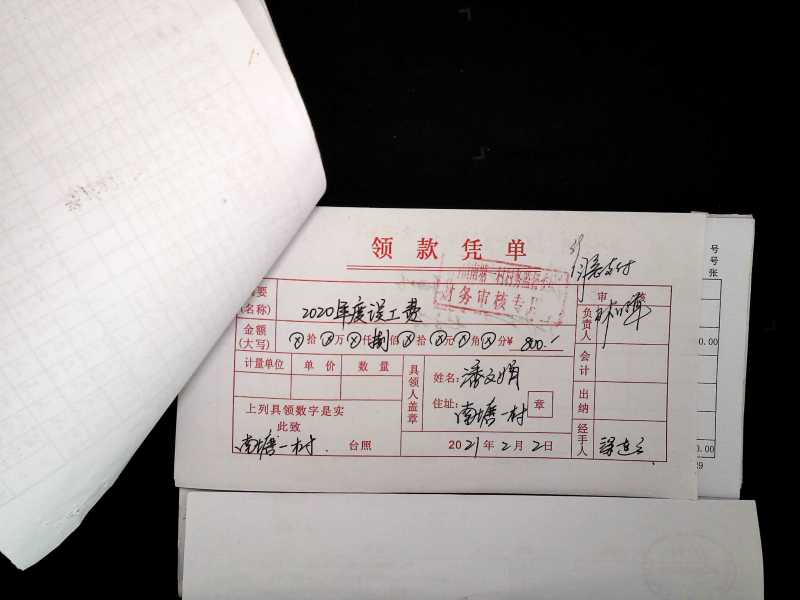 领款凭单
同意支付
南塘一村村务监督委
财务审核专
要
审 核
(名称)
2020年度误工费
负责人
金额
(大写)
ⓧ拾ⓧ万ⓧ仟捌佰ⓧ拾ⓧ元ⓧ角ⓧ分¥ 800.-
计量单位 单价 数量
具领人盖章
姓名: 潘文娟
住址: 南塘一村
章
会计
出纳
上列具领数字是实
此致
南塘一村. 台照
2021年2月2日
经手人
号
号
张
0.00
0.00
29